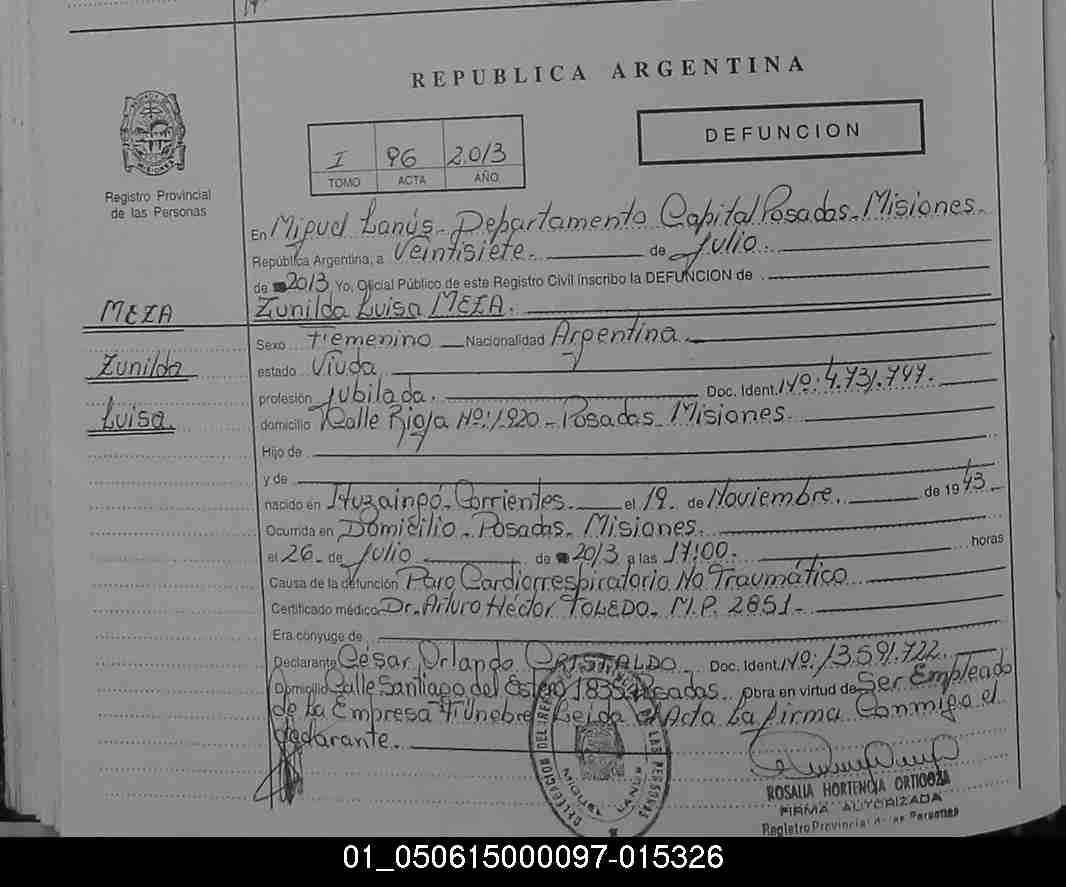 REPUBLICA ARGENTINA
DEFUNCION
I 96 2.013
TOMO ACTA AÑO
Registro Provincial
de las Personas
En Miguel Lanús - Departamento Capital Posadas - Misiones -
República Argentina, a Veintisiete. de Julio.
de 2013 Yo, Oficial Público de este Registro Civil inscribo la DEFUNCION de
MEZA
Zunilda Luisa MEZA.
Sexo Femenino Nacionalidad Argentina
Zunilda
estado Viuda
profesión Jubilada. Doc. Ident. Nº: 4.731.747.
Luisa.
domicilio Calle Rioja Nº: 1.920 - Posadas - Misiones
Hijo de
y de
nacido en Ituzaingó - Corrientes. el 19. de Noviembre. de 19 43
Ocurrida en Domicilio - Posadas - Misiones
el 26 - de Julio de 2013 a las 17:00. horas
Causa de la defunción Paro Cardiorrespiratorio No Traumático
Certificado médico Dr. Arturo Héctor TOLEDO - M.P. 2851 -
Era cónyuge de
Declarante César Orlando CRISTALDO Doc. Ident. Nº: 13.591.722.
Domicilio Calle Santiago del Estero 1835 Posadas Obra en virtud de Ser Empleado
de la Empresa Fúnebre Leída el Acta La firma Conmigo el
declarante.
DELEGACION DEL REGISTRO LAS PERSONAS
MIGUEL LANUS
ROSALIA HORTENCIA ORTIGOZA
FIRMA AUTORIZADA
Registro Provincial de las Personas
01_050615000097-015326